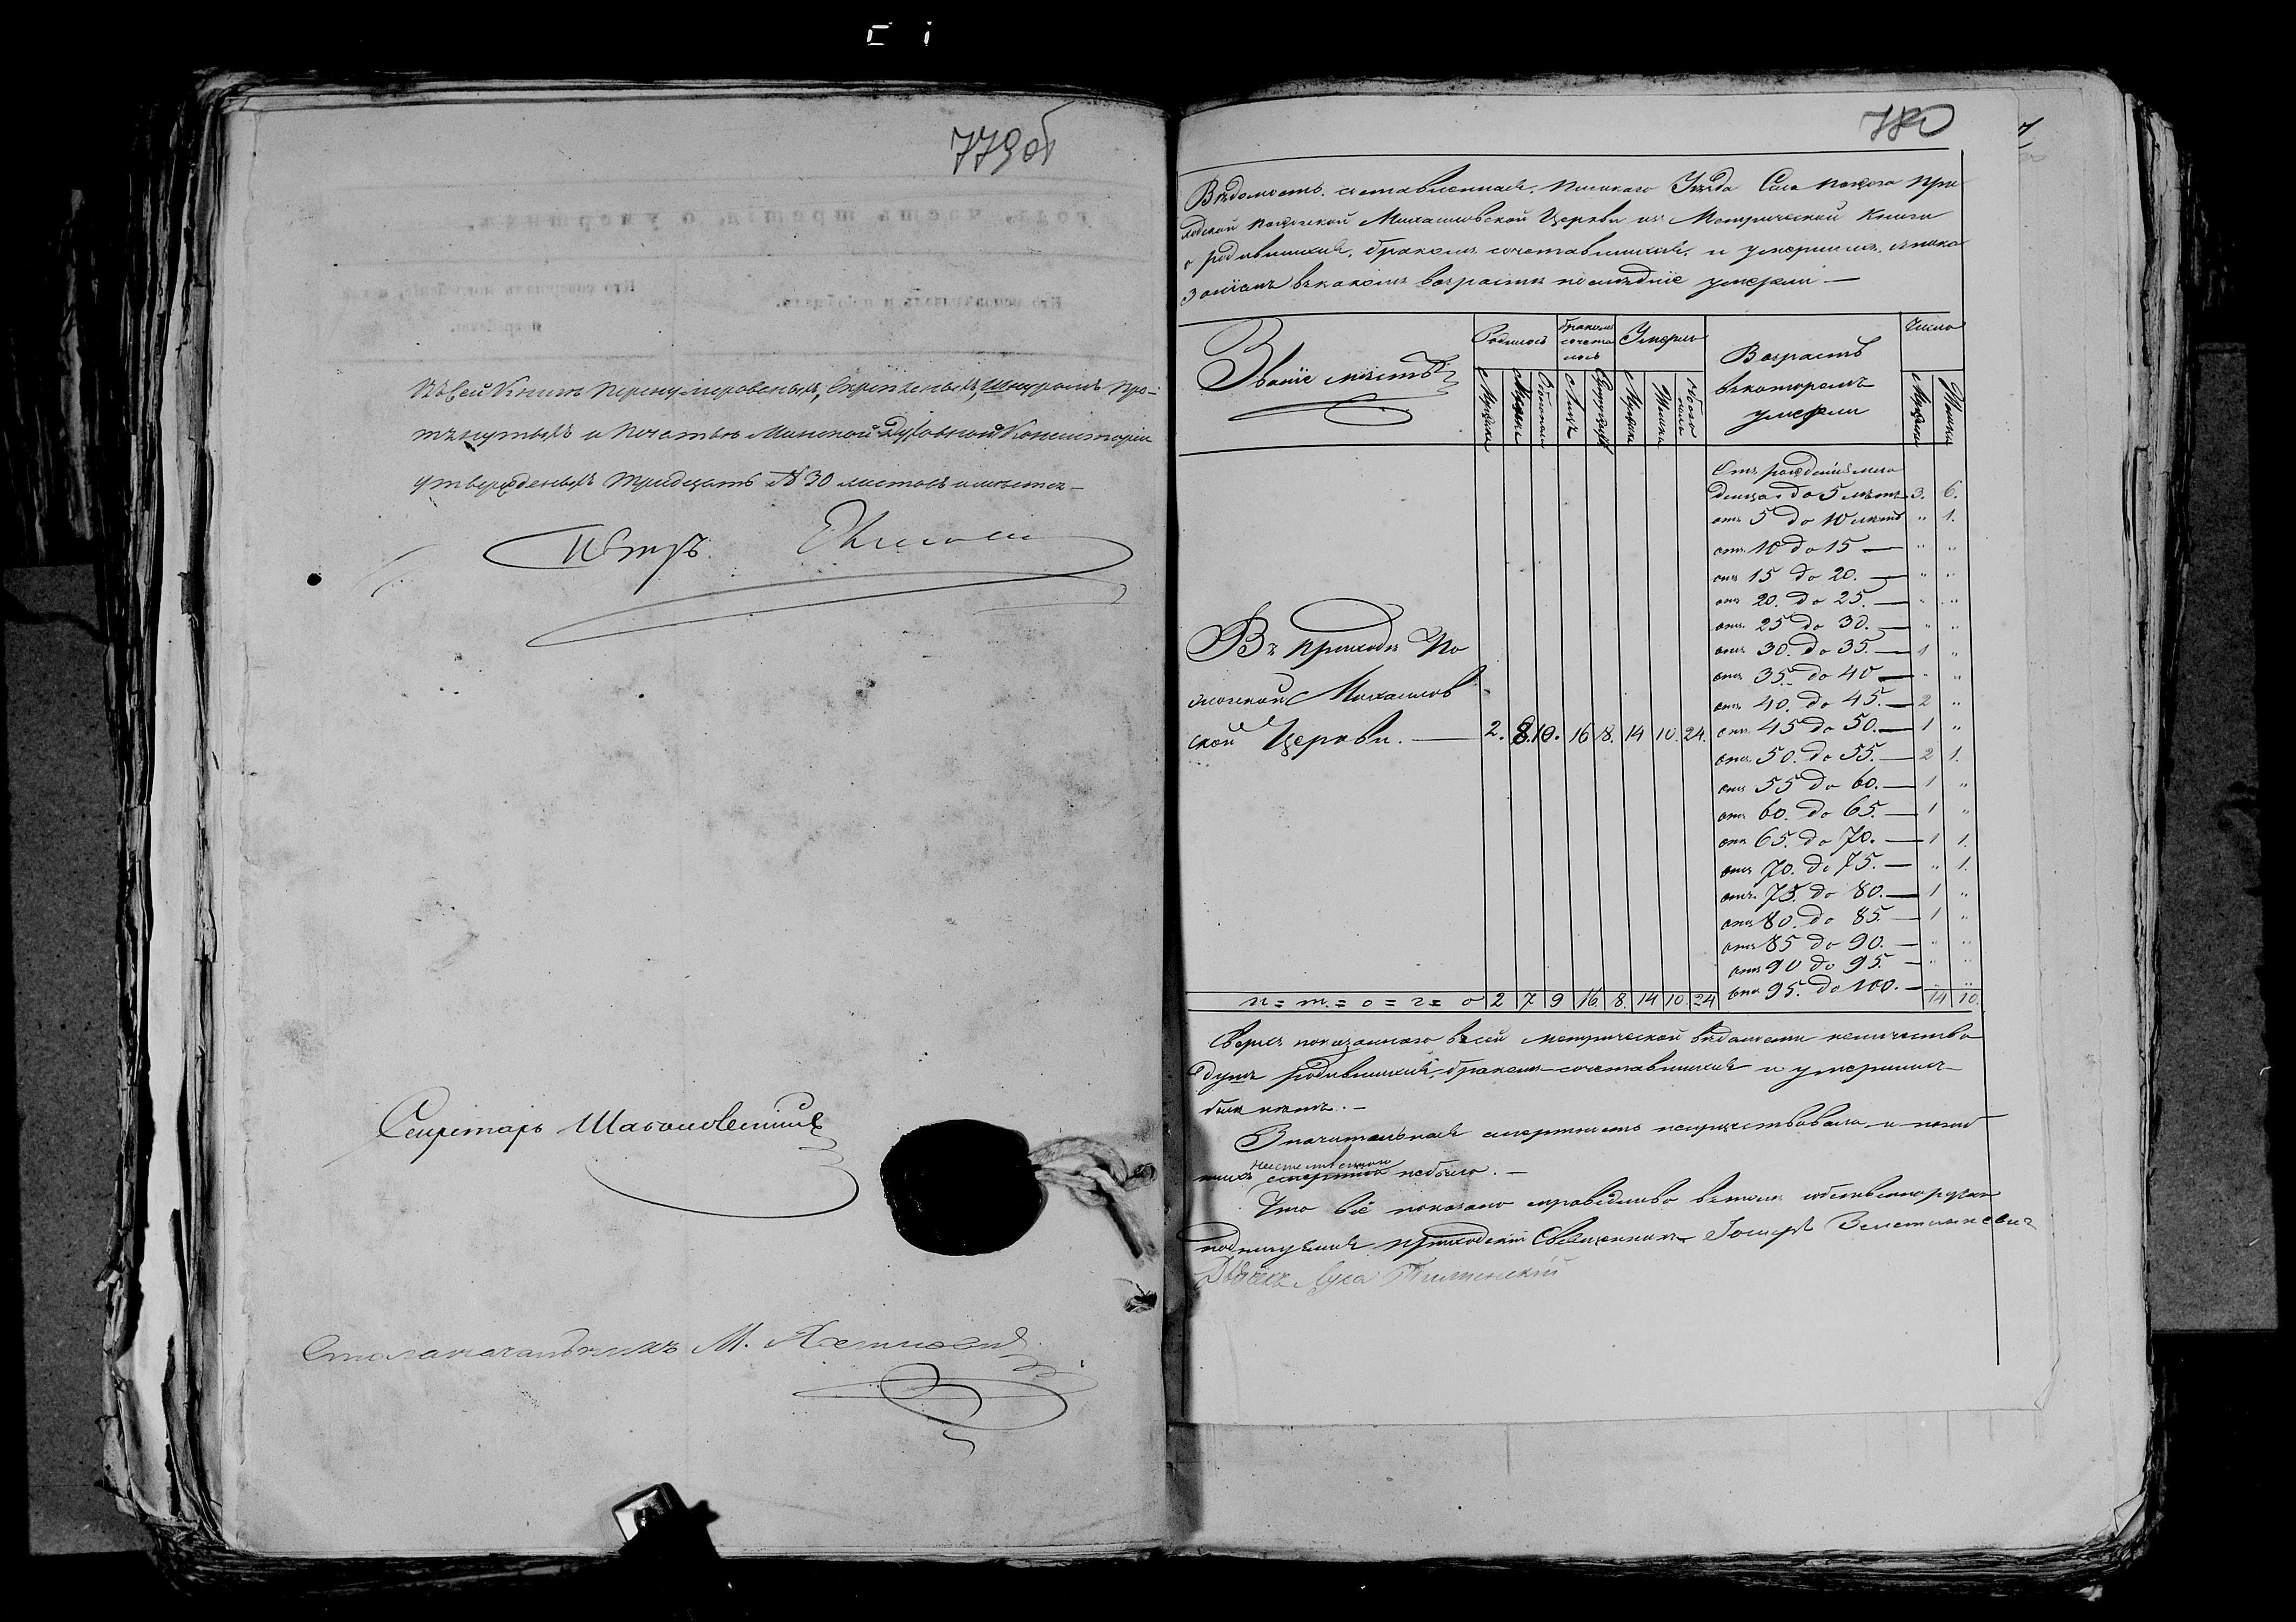 779об
Въ сей Книгѣ Перенумерованыхъ, Скрепленыхъ, шнуромъ про-
тянутыхъ и Печатью Минской Духовной Консисторіи
утвержденыхъ тридцать № 30 листовъ имѣется
Петръ
Секретарь
Столоначальникъ М.
780
Вѣдомость составленная Пинскаго Уѣзда Села При
ходской Михаиловской Церкви изъ Метрической Книги
о родившихся, бракомъ сочетавшихся, и умершихъ, съ пока
заніемъ въ какомъ возрастѣ послѣдніе умерли —
Званіе мѣстъ
Родилось
бракомъ сочета лось
Умерло
Возрастъ въ которомъ умерли
Число
Мужска Женска Обоего Лицъ Супружствъ Мужска Женска обоего пола Мужска Женска
Отъ рожденія мла
денца до 5 лѣтъ 3. 6.
отъ 5 до 10 лѣтъ „ 1.
отъ 10 до 15 — „ „
отъ 15 до 20. — „ „
отъ 20. до 25. — „ „
отъ 25 до 30. — „ „
отъ 30. до 35. — 1 „
отъ 35. до 40 — „ „
отъ 40. до 45. — 2 „
отъ 45 до 50. — 1 „
отъ 50. до 55. — 2 1.
отъ 55 до 60. — 1 „
отъ 60. до 65. — 1 „
отъ 65. до 70. — 1 1.
отъ 70. до 75. — „ 1.
отъ 75. до 80. — 1 „
отъ 80. до 85. — 1 „
отъ 85 до 90. — „ „
отъ 90 до 95. — „ „
отъ 95. до 100. — „ „
Въ приходѣ По
Михаилов
ской Церкви. — 2. 8. 10. 16 8. 14 10. 24.
и = т. = о = г = о 2 7 9 16 8. 14 10. 24 14 10.
Сверхъ показаннаго въ сей метрической вѣдомости количества
душъ родившихся, бракомъ сочетавшихся и умершихъ
болѣ нѣтъ. —
Значительная смертность несуществовала и
не было. —
Что всё показано справедливо въ томъ собственноручно
подписуемся приходскій Священникъ Іосифъ
Дьячекъ Лука